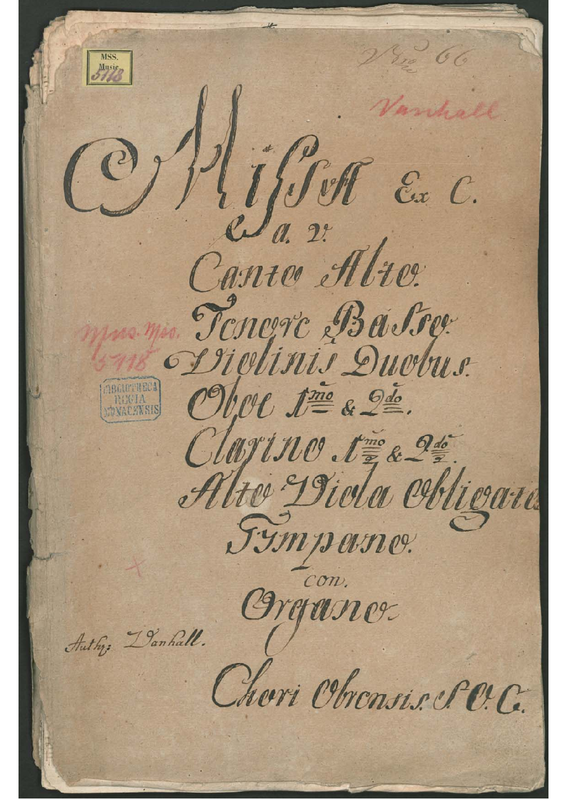 MSS.
Music
5118
66
Vanhall
Missa Ex C.
a. v.
Canto Alto.
Tenore Basso.
Mus. Mss.
5118
Violinis Duobus.
BIBLIOTHECA
REGIA
MONACENSIS
Oboe 1mo & 2do.
Clarino 1mo & 2do.
Alto Viola Obligata
Tympano.
con.
Organo.
Auth: Vanhall.
Chori Obrensis. S. O. C.